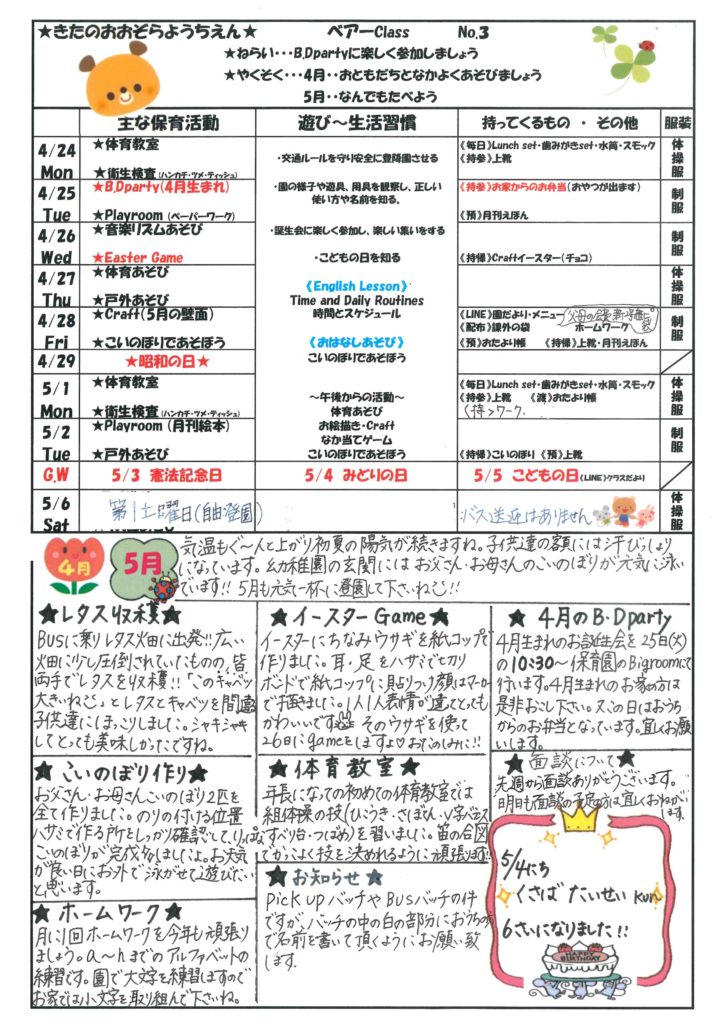 ★きたのおおぞらようちえん★ ベアーClass No.3
★ねらい・・・B.Dpartyに楽しく参加しましょう
★やくそく・・・4月・・おともだちとなかよくあそびましょう
5月・・なんでもたべよう
主な保育活動 遊び～生活習慣 持ってくるもの ・ その他 服装
4/24 Mon
★体育教室
★衛生検査(ハンカチ・ツメ・ティッシュ)
・交通ルールを守り安全に登降園させる
《毎日》Lunch set・歯みがきset・水筒・スモック
《持参》上靴
体操服
4/25 Tue
★B.Dparty(4月生まれ)
★Playroom (ペーパーワーク)
・園の様子や遊具、用具を観察し、正しい
使い方や名前を知る。
《持参》お家からのお弁当(おやつが出ます)
《預》月刊えほん
制服
4/26 Wed
★音楽リズムあそび
★Easter Game
・誕生会に楽しく参加し、楽しい集いをする
・こどもの日を知る
《持帰》Craftイースター(チョコ)
制服
4/27 Thu
★体育あそび
★戸外あそび
《English Lesson》
Time and Daily Routines
時間とスケジュール
体操服
4/28 Fri
★Craft(5月の壁面)
★こいのぼりであそぼう
《おはなしあそび》
こいのぼりであそぼう
《LINE》園だより・メニュー
《配布》課外の袋 ホームワーク
《預》おたより帳 《持帰》上靴・月刊えほん
制服
4/29 ★昭和の日★
5/1 Mon
★体育教室
★衛生検査(ハンカチ・ツメ・ティッシュ)
～午後からの活動～
体育あそび
お絵描き・Craft
なか当てゲーム
こいのぼりであそぼう
《毎日》Lunch set・歯みがきset・水筒・スモック
《持参》上靴 《渡》おたより帳
体操服
5/2 Tue
★Playroom (月刊絵本)
★戸外あそび
《持帰》こいのぼり 《預》上靴
制服
G.W 5/3 憲法記念日 5/4 みどりの日 5/5 こどもの日(LINE)クラスだより
5/6 Sat
第1土曜日(自由登園) バス送迎はありません
体操服
4月
5月
気温もぐ～んと上がり初夏の陽気が続きますね。子供達の額には汗びっしょり
になっています。幼稚園の玄関には お父さん・お母さんのこいのぼりが元気に泳い
でいます!! 5月も元気一杯に登園して下さいね!!
★レタス収穫★
BUSに乗りレタス畑に出発!!! 広い
畑に少し圧倒されていたものの、皆
両手でレタスを収穫!!「このキャベツ
大きいねぇ」とレタスとキャベツを間違う
子供達にほっこりしました。シャキシャキ
してとっても美味しかったですね。
★イースターGame★
イースターにちなみウサギを紙コップで
作りました。耳・足をハサミで切り
ボンドで紙コップに貼りつけ顔はマーカー
で描きました。1人1人表情が違てとっても
かわいいです そのウサギを使って
26日にgameをしますよ♡お楽しみに!!
★ 4月のB・Dparty
4月生まれのお誕生会を25日(火)
の10:30～保育園のBigroomにて
行います。4月生まれのお家の方は
是非お越し下さい。又この日はおうち
からのお弁当となっています。宜しくお願
いします。
★こいのぼり作り★
お父さん・お母さんこいのぼり2匹を
全て作りました。のりの付ける位置
ハサミで作る所をしっかり確認して、りっぱな
こいのぼりが完成しましたよ。お天気
が良い日にお外で泳がせて遊びたい
と思います。
★体育教室★
年長になっての初めての体育教室では
組体操の技(ひこうき・さぼてん・V字バランス
すべり台・つばめ)を習いました。笛の合図
でかっこよく技を決めれるように頑張ります!!!
★面談について★
先週から面談ありがとうございます。
明日も面談の予定の方は宜しくおねがい
します
★ホームワーク★
月に1回ホームワークを今年も頑張り
ましょう。a～nまでのアルファベットの
練習です。園で大文字を練習しますので
お家では小文字を取り組んで下さいね。
★お知らせ★
Pick UPバッチやBUSバッチの件
ですが、バッチの中の白の部分におうちの方
で名前を書いて頂くようにお願い致
します。
5/4にち
くさば たいせい kun
6さいになりました!!
HAPPY BIRTHDAY